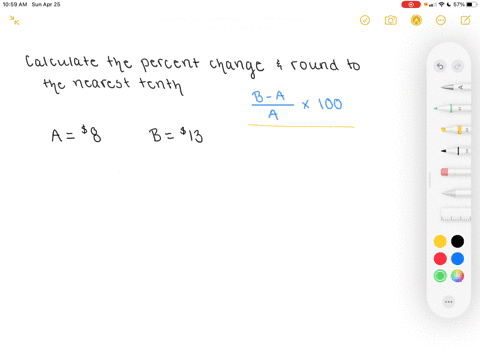 10:59 AM Sun Apr 25 57%
Calculate the percent change & round to
the nearest tenth
B-A
A
x 100
A = $8 B = $13